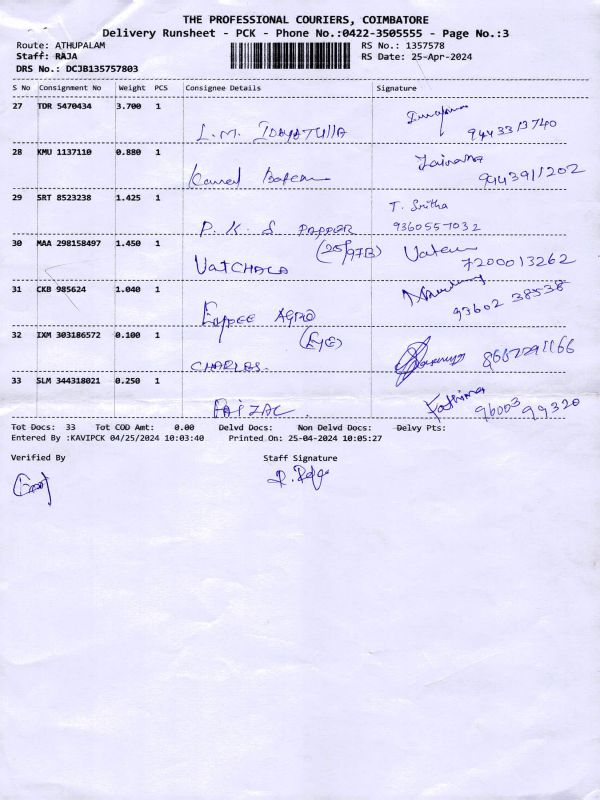 THE PROFESSIONAL COURIERS, COIMBATORE
Delivery Runsheet - PCK - Phone No.:0422-3505555 - Page No.:3
Route: ATHUPALAM RS No.: 1357578
Staff: RAJA RS Date: 25-Apr-2024
DRS No.: DCJB135757803
S No Consignment No Weight PCS Consignee Details Signature
27 TDR 5470434 3.700 1
L.M. IDAYATULLA 9443313740
28 KMU 1137110 0.880 1
9443911202
29 SRT 8523238 1.425 1 T. Snitha
P. K. S PAPPER 9360557032
30 MAA 298158497 1.450 1 (25/97B)
VATCHALA 7200013262
31 CKB 985624 1.040 1
AGRO 93602 38538
32 IXM 303186572 0.100 1
CHARLES. 8667291166
33 SLM 344318021 0.250 1 Fathima
FAIZAL 96003 99320
Tot Docs: 33 Tot COD Amt: 0.00 Delvd Docs: Non Delvd Docs: Delvy Pts:
Entered By :KAVIPCK 04/25/2024 10:03:40 Printed On: 25-04-2024 10:05:27
Verified By Staff Signature